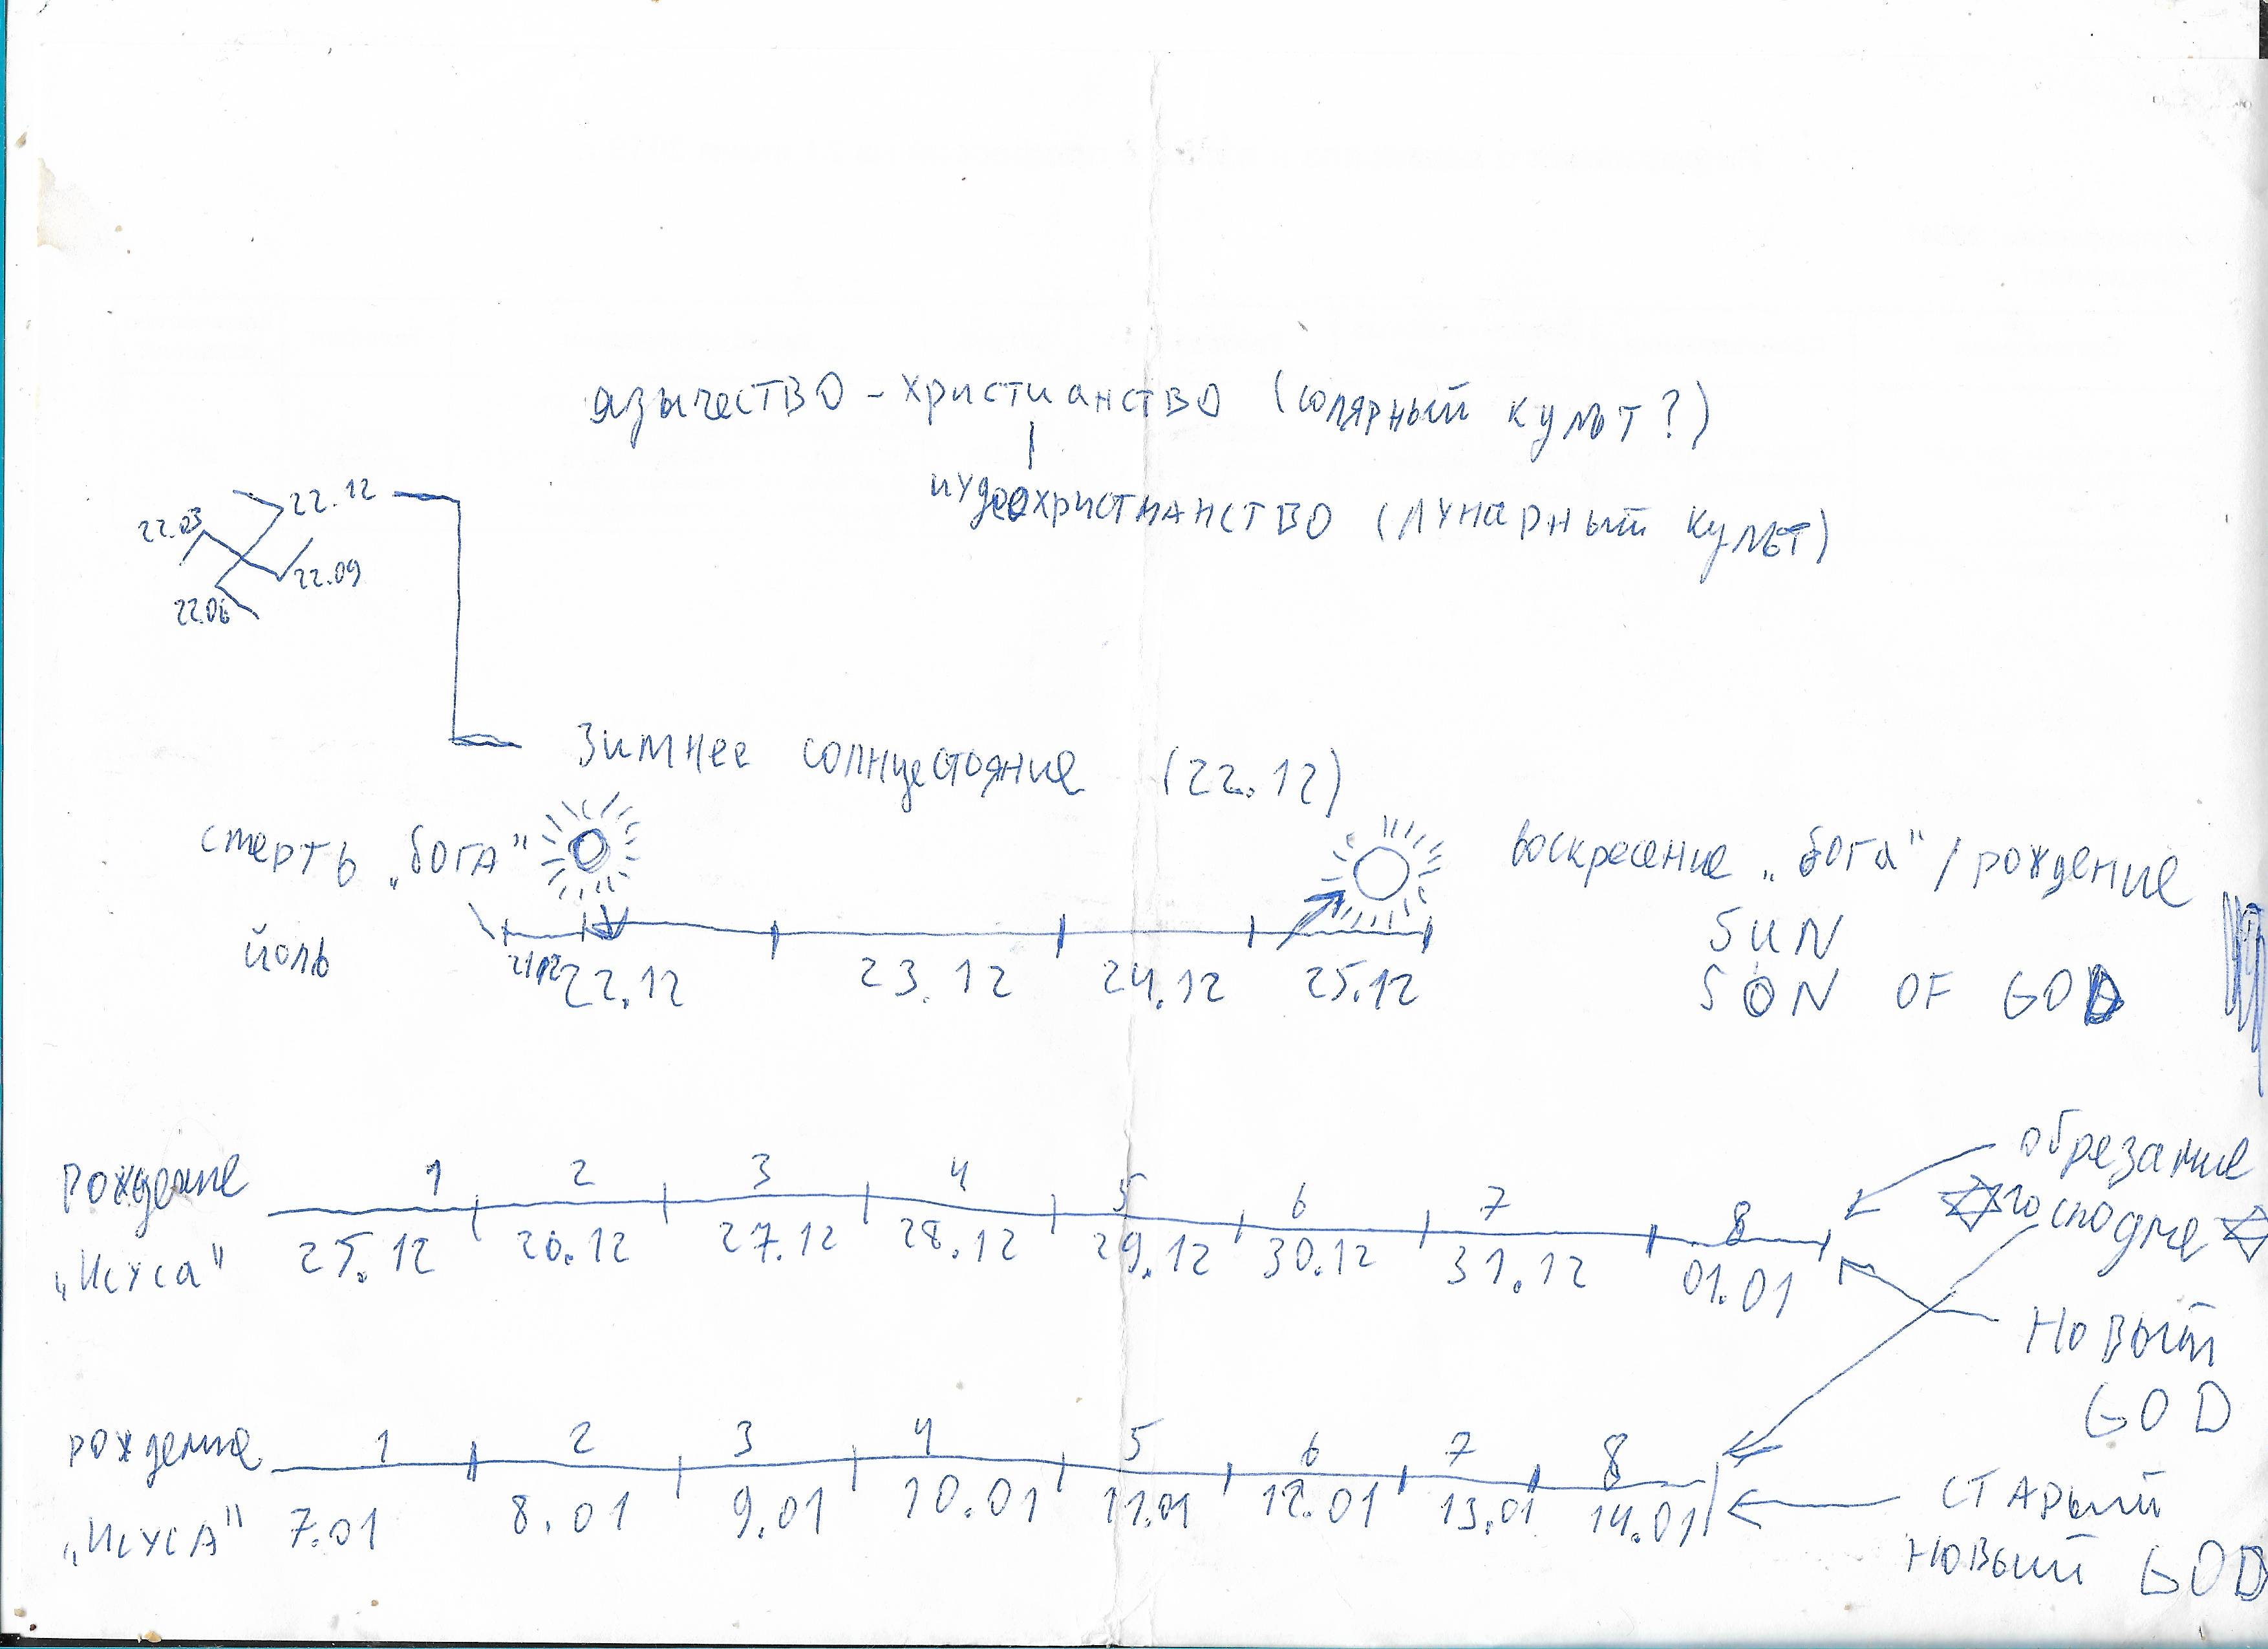 язычество - христианство (солярный культ?)
иудеохристианство (лунарный культ)
22.12
22.03
22.09
22.06
Зимнее солнцестояние (22.12)
смерть „бога"
воскресение „бога" / рождение
йоль
SUN
SON OF GOD
21.12 22.12 23.12 24.12 25.12
обрезание
господне
рождение 1 2 3 4 5 6 7 8
„Исуса" 25.12 26.12 27.12 28.12 29.12 30.12 31.12 01.01
новый
GOD
рождение 1 2 3 4 5 6 7 8
„Исуса" 7.01 8.01 9.01 10.01 11.01 12.01 13.01 14.01
старый
новый GOD